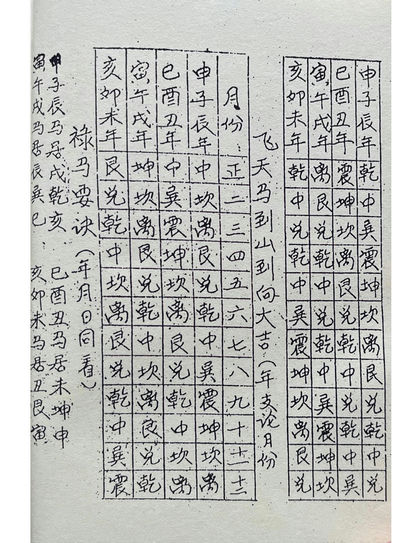 申子辰年中巽震坤坎离艮兑乾中兑乾
巳酉丑年震坤坎离艮兑乾中兑乾中巽
寅午戌年离艮兑乾中兑乾中巽震坤坎
亥卯未年乾中兑乾中巽震坤坎离艮兑
飞天马到山到向大吉:(年支论月份
月份正二三四五六七八九十十一十二
申子辰年坎离艮兑乾中兑巽震坤坎离
巳酉丑年中巽震坤坎离艮兑乾中坎离
寅午戌年坤坎离艮兑乾中坎离艮兑乾
亥卯未年艮兑乾中坎离艮兑乾中巽震
禄马要诀(年月日同看)
申子辰马居戌乾亥 巳酉丑马居未坤申
寅午戌马居辰巽巳. 亥卯未马居丑艮寅